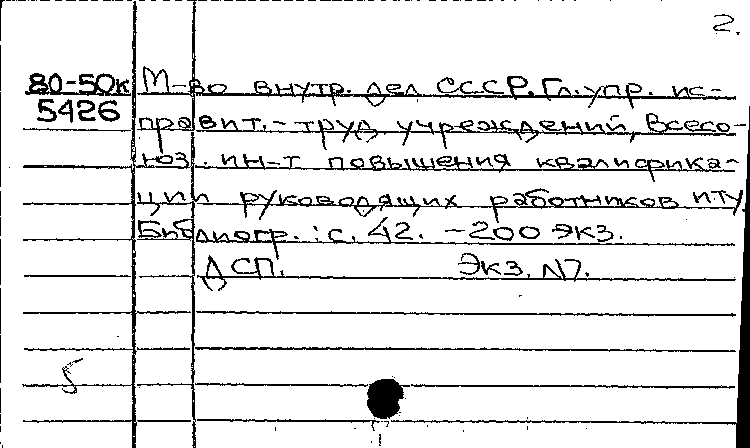 2.
80-50к М-во внутр. дел СССР. Гл. упр. ис-
5426 правит.-труд учреждений, Всесо-
юз. ин-т повышения квалифика-
ции руководящих работников ИТУ.
Библиогр.: с. 42. - 200 экз.
ДСП. Экз. N7.
5